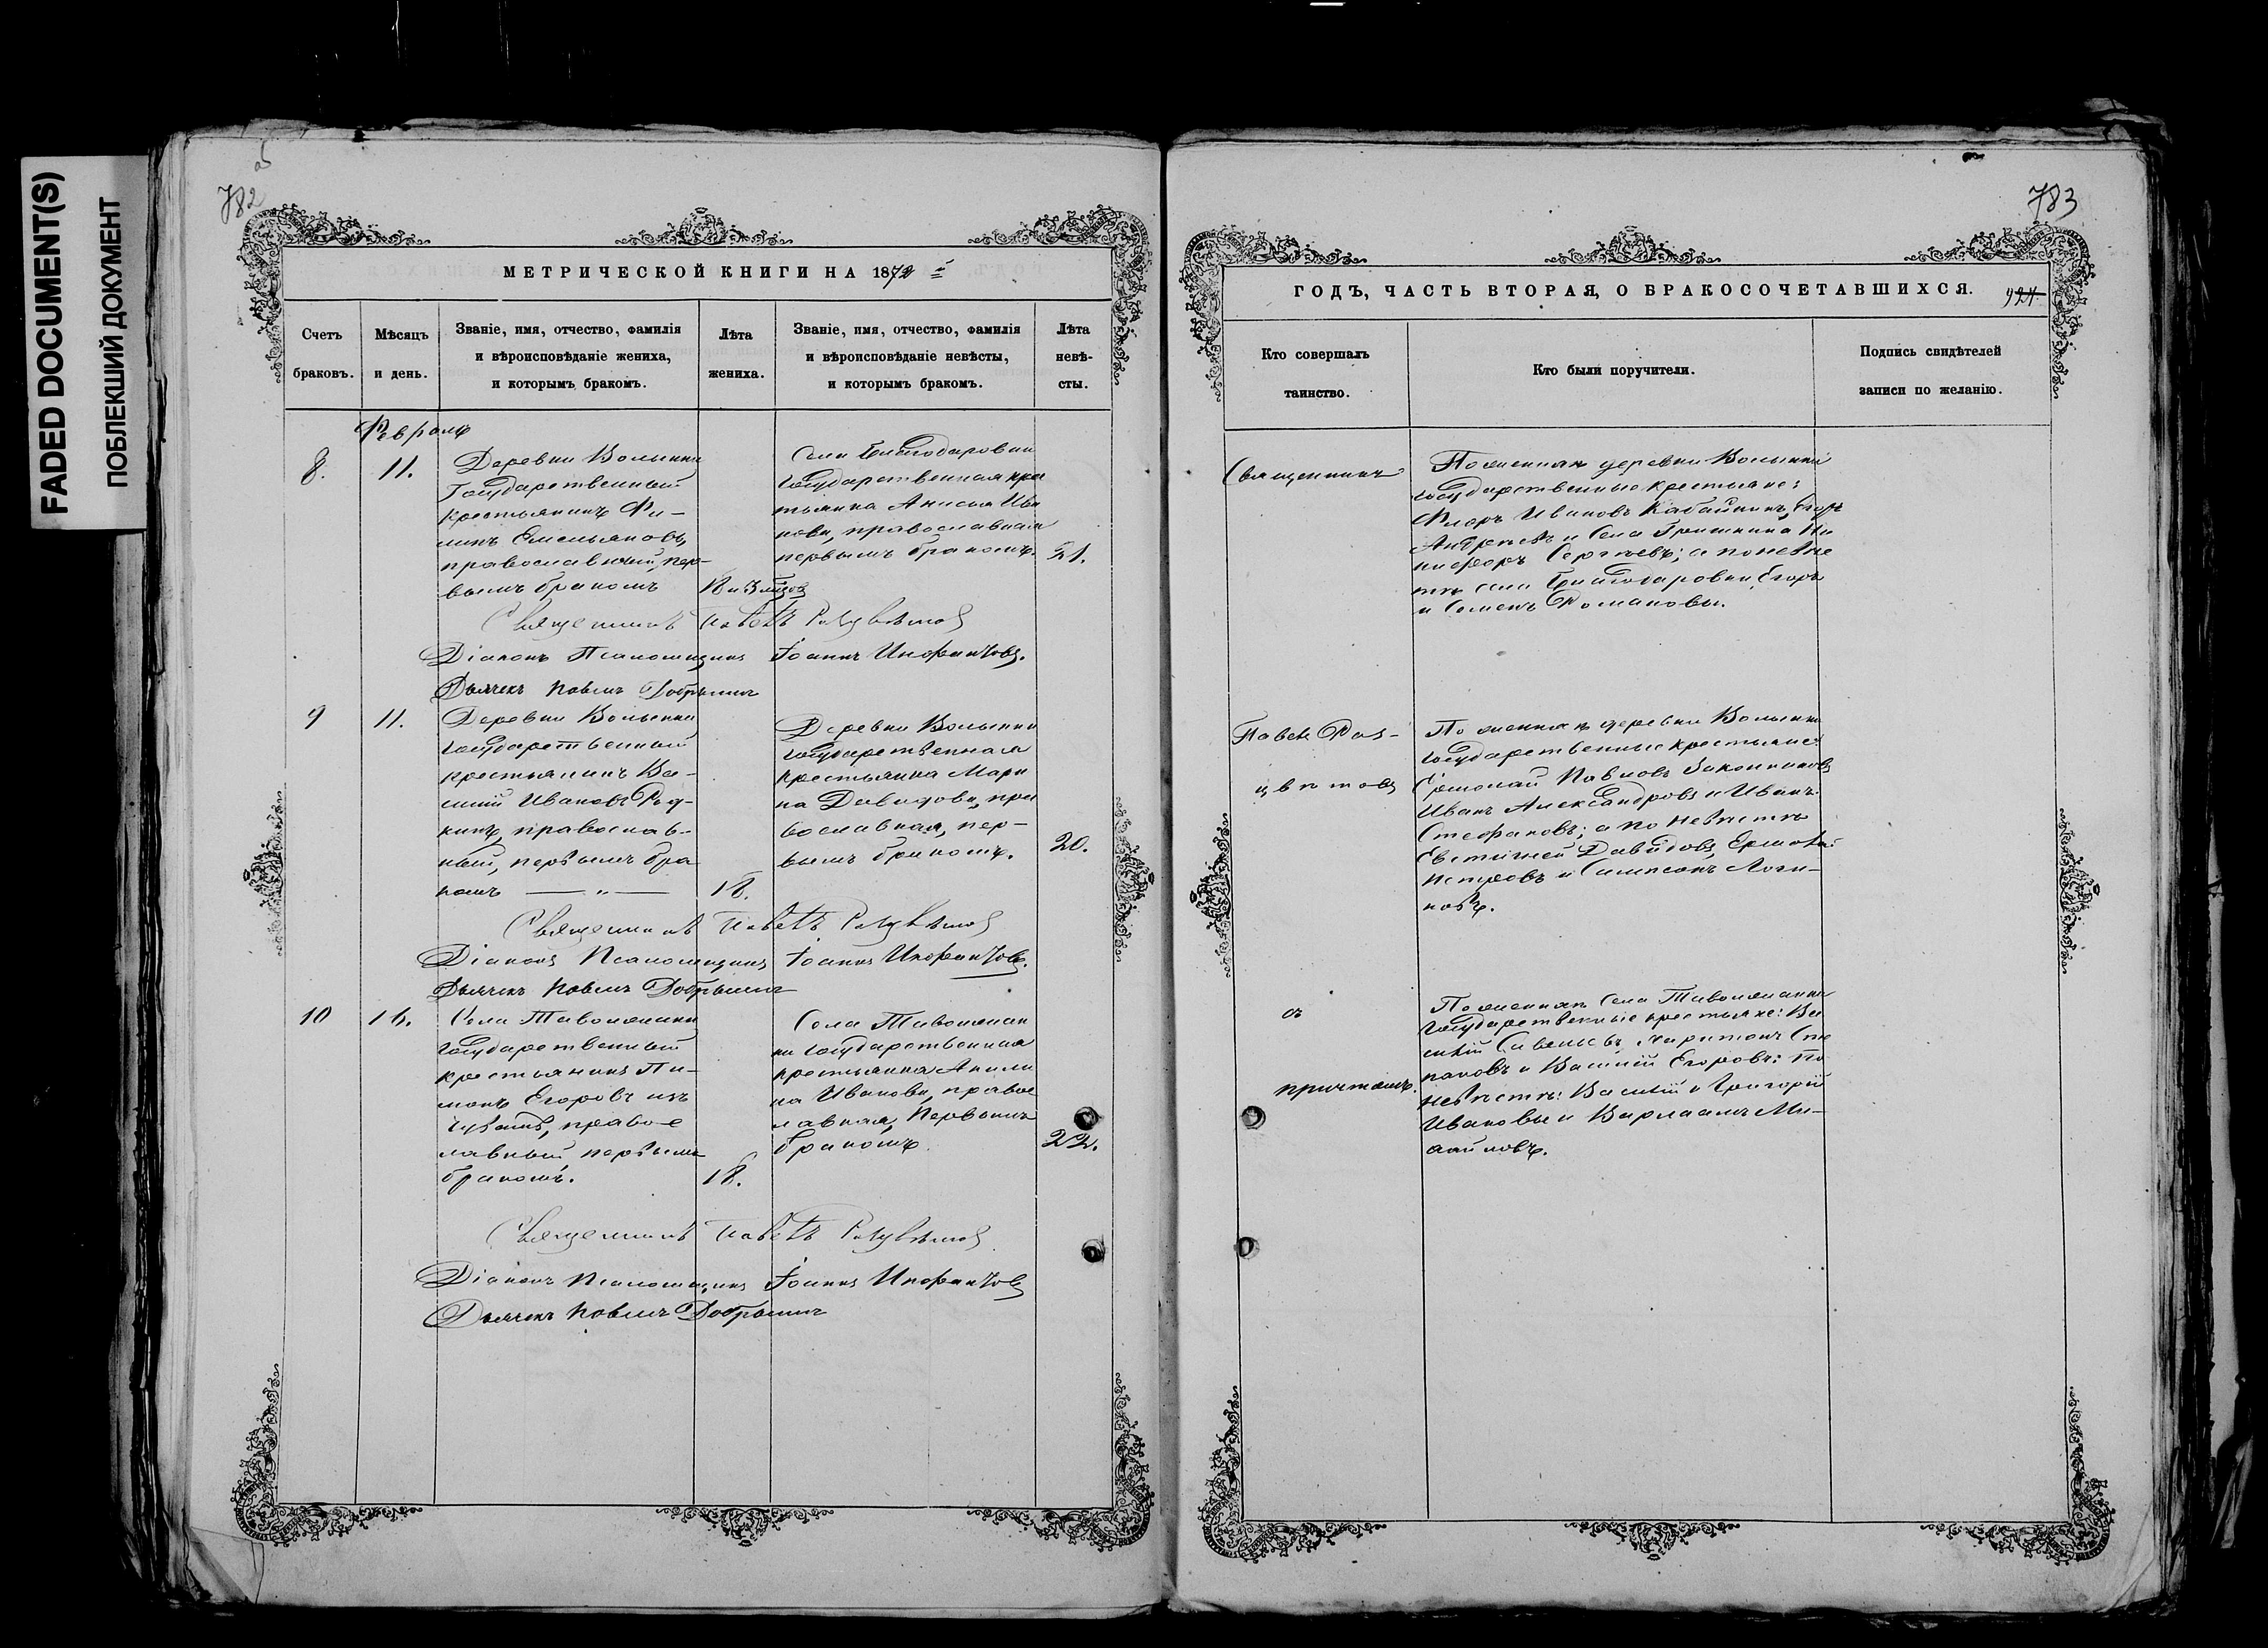 FADED DOCUMENT(S)
ПОБЛЕКШИЙ ДОКУМЕНТ
782
МЕТРИЧЕСКОЙ КНИГИ НА 1872
Счетъ браковъ.
Мѣсяцъ и день.
Званіе, имя, отчество, фамилія
и вѣроисповѣданіе жениха,
и которымъ бракомъ.
Лѣта жениха.
Званіе, имя, отчество, фамилія
и вѣроисповѣданіе невѣсты,
и которымъ бракомъ.
Лѣта невѣ-
сты.
Февраль
8.
11.
Деревни Волынки
Государственный
крестьянинъ Фи-
липъ Емельяновъ,
православный, пер-
вымъ бракомъ
Села Благодаровки
государственная кре
стьянка Анисья Ива
нова, православная
первымъ бракомъ.
21.
Священникъ Павелъ Разцвѣтов
Діаконъ Псаломщикъ Іоаннъ
Дьячекъ Павелъ Добрынинъ
9
11.
Деревни Волынки
государственный
крестьянинъ Ва-
силій Ивановъ Ряд-
кинъ, православ-
ный, первымъ бра
комъ
18.
Деревни Волынки
государственная
крестьянка Мари
на Давидова, пра
вославная, пер-
вымъ бракомъ.
20.
Священникъ Павелъ Разцвѣтов
Діаконъ Псаломщикъ Іоаннъ
Дьячекъ Павелъ Добрынинъ
10
16.
Села
государственный
крестьянинъ Пи-
менъ Егоровъ изъ
чувашъ, правос
лавный первымъ
бракомъ.
18.
Села
государственная
крестьянка Акили
на Иванова, правос
лавная, первымъ
бракомъ.
22.
Священникъ Павелъ Разцвѣтов
Діаконъ Псаломщикъ Іоаннъ
Дьячекъ Павелъ Добрынинъ
783
ГОДЪ, ЧАСТЬ ВТОРАЯ, О БРАКОСОЧЕТАВШИХСЯ.
Кто совершалъ
таинство.
Кто были поручители.
Подпись свидѣтелей
записи по желанію.
Священникъ
По женихѣ деревни Волынки
государственные крестьяне:
Флоръ Ивановъ Кабайкинъ, Егоръ
Андреевъ и Села Гришкина Ни
кифоръ Сергѣевъ; а по невѣс
тѣ села Благодаровки, Егоръ
и Семенъ Романовы.
Павелъ Раз-
цвѣтовъ
По женихѣ деревни Волынки
государственные крестьяне:
Ермолай Павловъ
Иванъ Александровъ и Иванъ
Стефановъ; а по невѣстѣ
Евстигней Давидовъ, Ермолай
Петровъ и Симпсонъ Логи-
новъ.
съ
причтомъ.
По женихѣ Села
государственные крестьяне: Ва
силій Савельевъ, Харитонъ Сте
пановъ и Василій Егоровъ: по
невѣстѣ: Василій и Григорій
Ивановы и Варлаамъ Ми-
хайловъ.